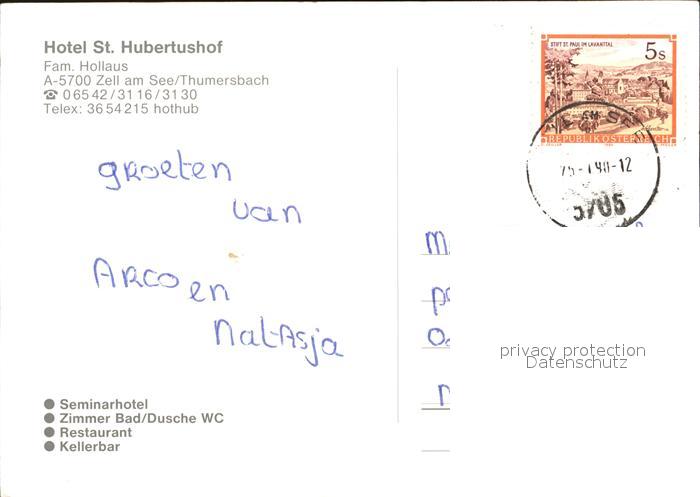 Hotel St. Hubertushof
Fam. Hollaus
A-5700 Zell am See/Thumersbach
☎ 0 65 42 / 31 16 / 31 30
Telex: 36 54 215 hothub
groeten
van
Arco en
Natasja
● Seminarhotel
● Zimmer Bad/Dusche WC
● Restaurant
● Kellerbar
STIFT ST. PAUL IM LAVANTTAL
5s
REPUBLIK ÖSTERREICH
90-12
5705
privacy protection
Datenschutz